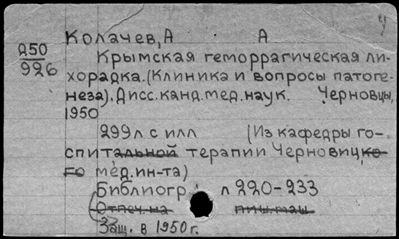 Колачев, А А
250
926
Крымская геморрагическая ли-
хорадка. (Клиника и вопросы патоге-
неза). Дисс. канд. мед. наук. Черновцы,
1950
299 л с илл (Из кафедры го-
спитальной терапии Черновицко-
го мед. ин-та)
Библиогр л 220-233
(Отпеч. на пиш. маш.
Защ. в 1950 г.